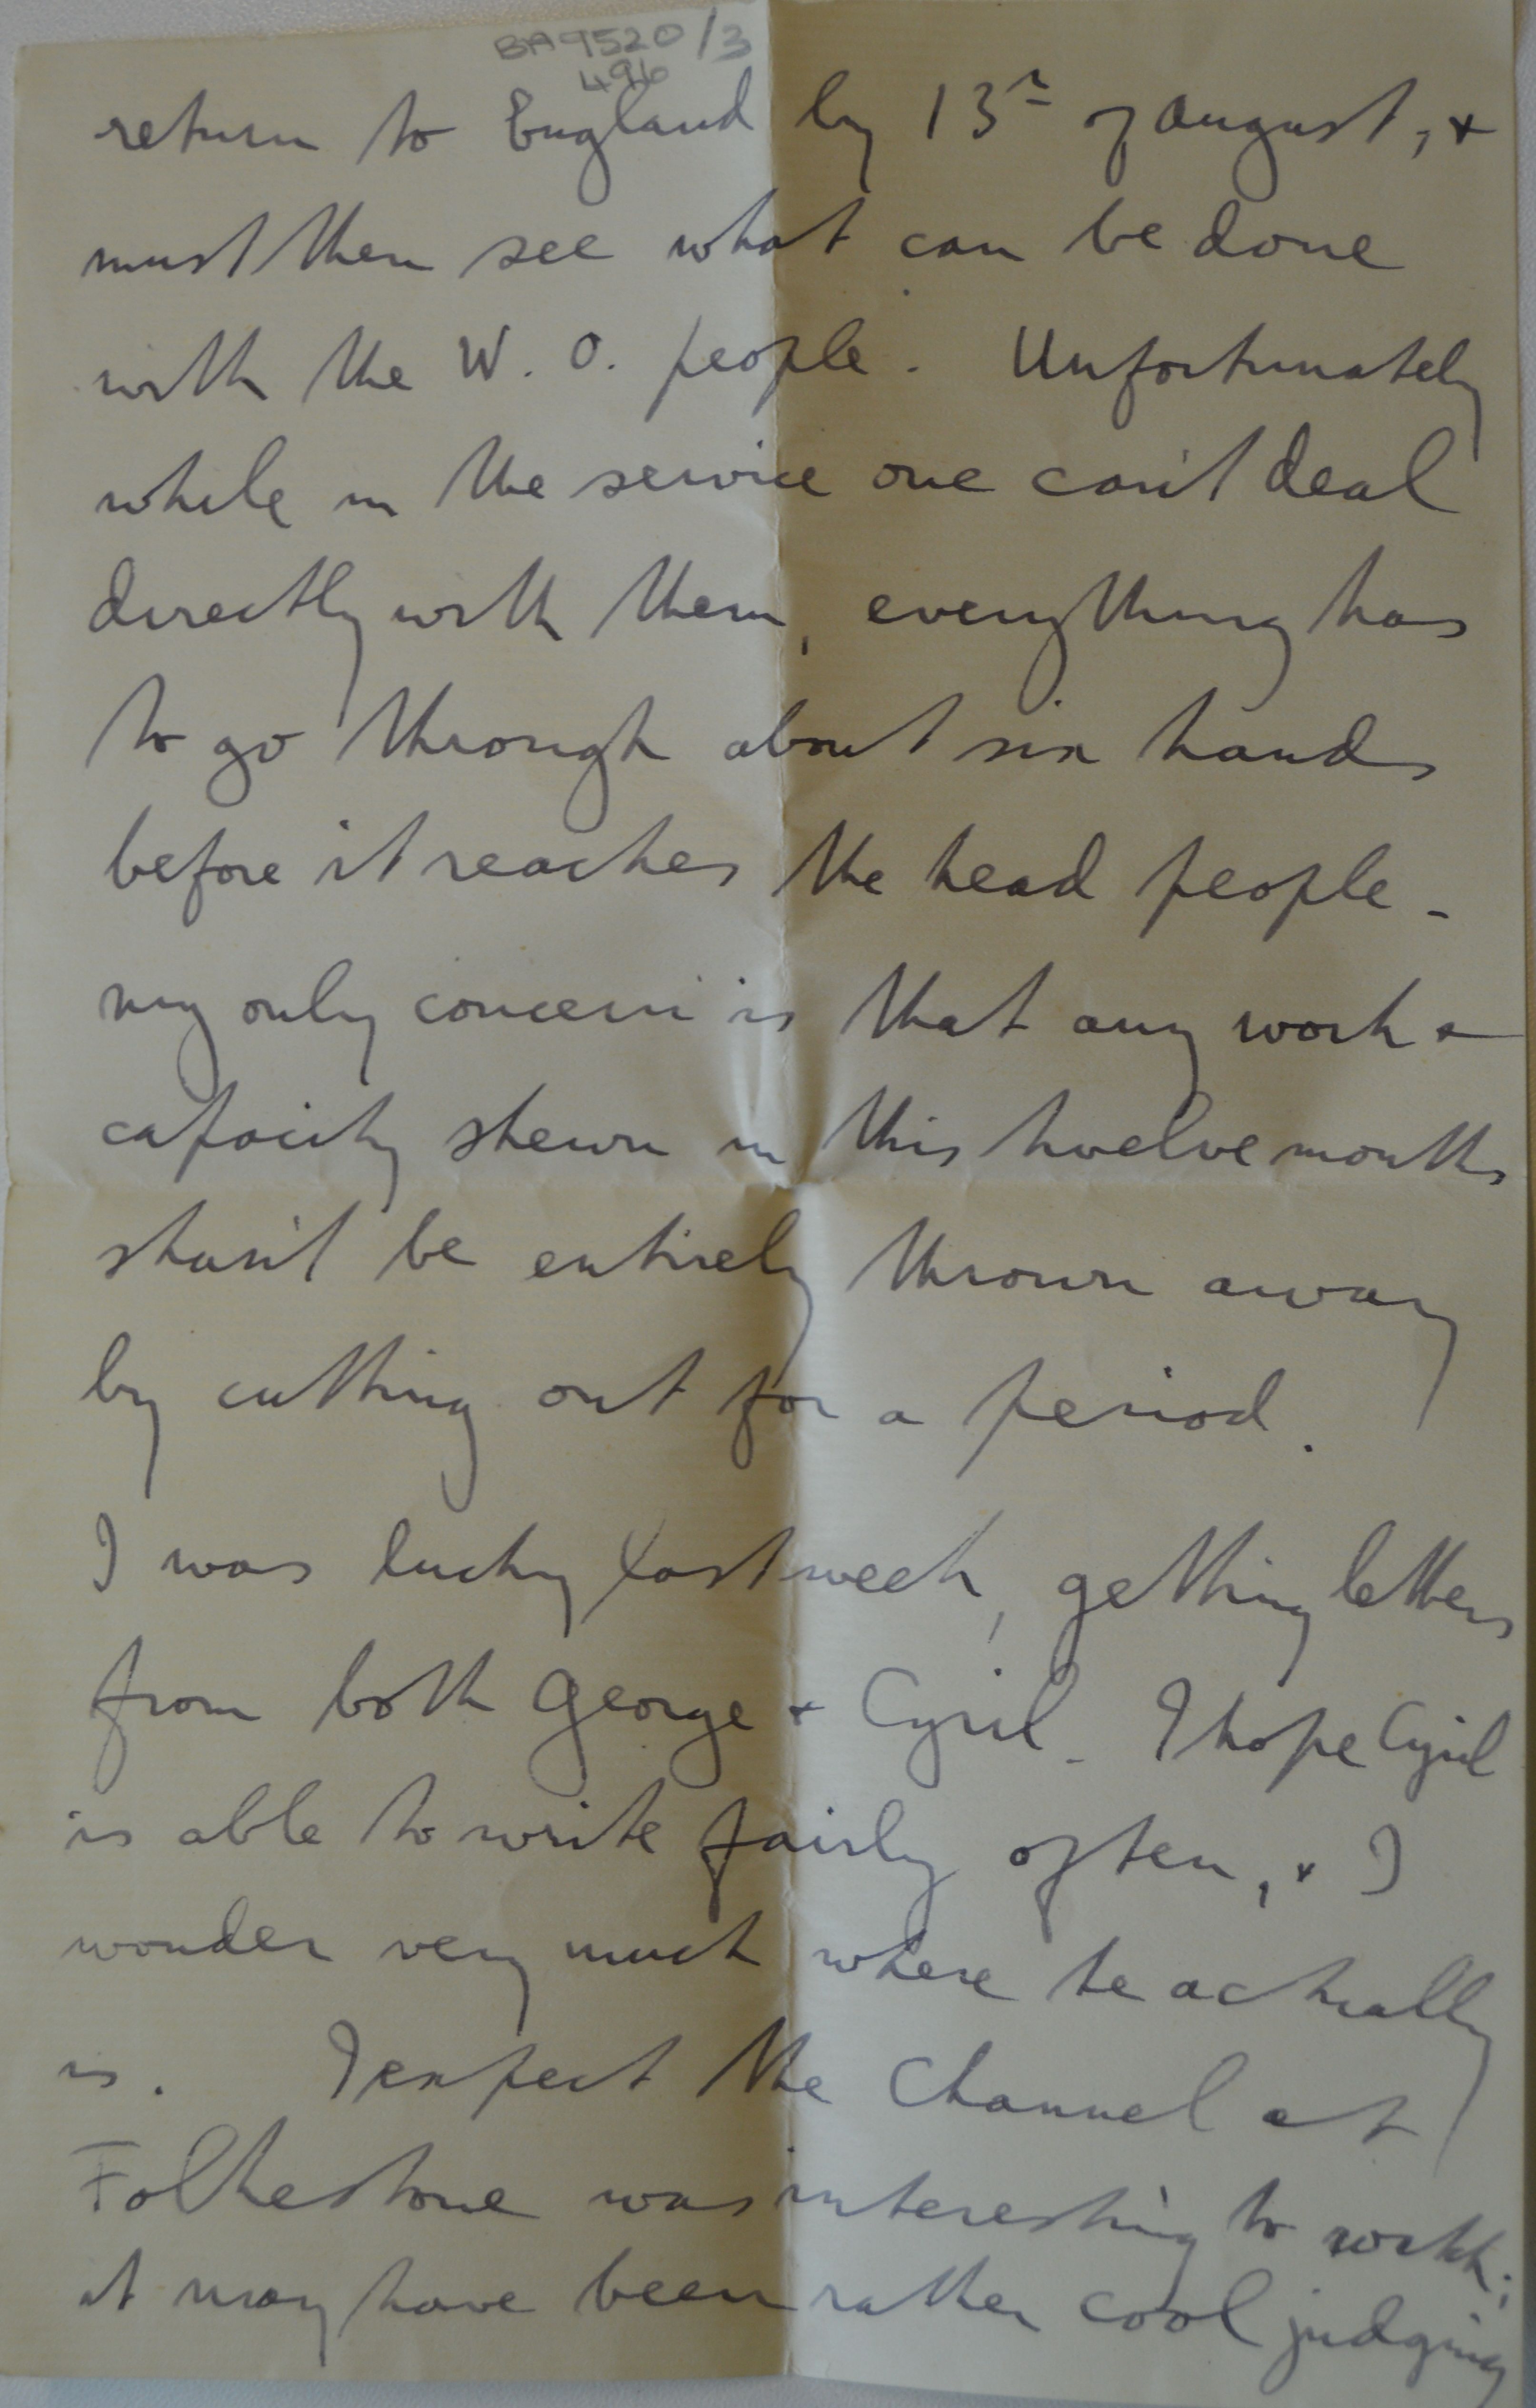 BA9520/3
496
return to England by 13th of August, +
must then see what can be done
with the W. O. people. Unfortunately
while in the service one can't deal
directly with them, everything has
to go through about six hands
before it reaches the head people -
my only concern is that any work +
capacity shewn in this twelve months
shan't be entirely thrown away
by cutting out for a period.
I was lucky last week, getting letters
from both George + Cyril - I hope Cyril
is able to write fairly often, + I
wonder very much where he actually
is. I expect the Channel at
Folkestone was interesting to watch;
it may have been rather cool judging